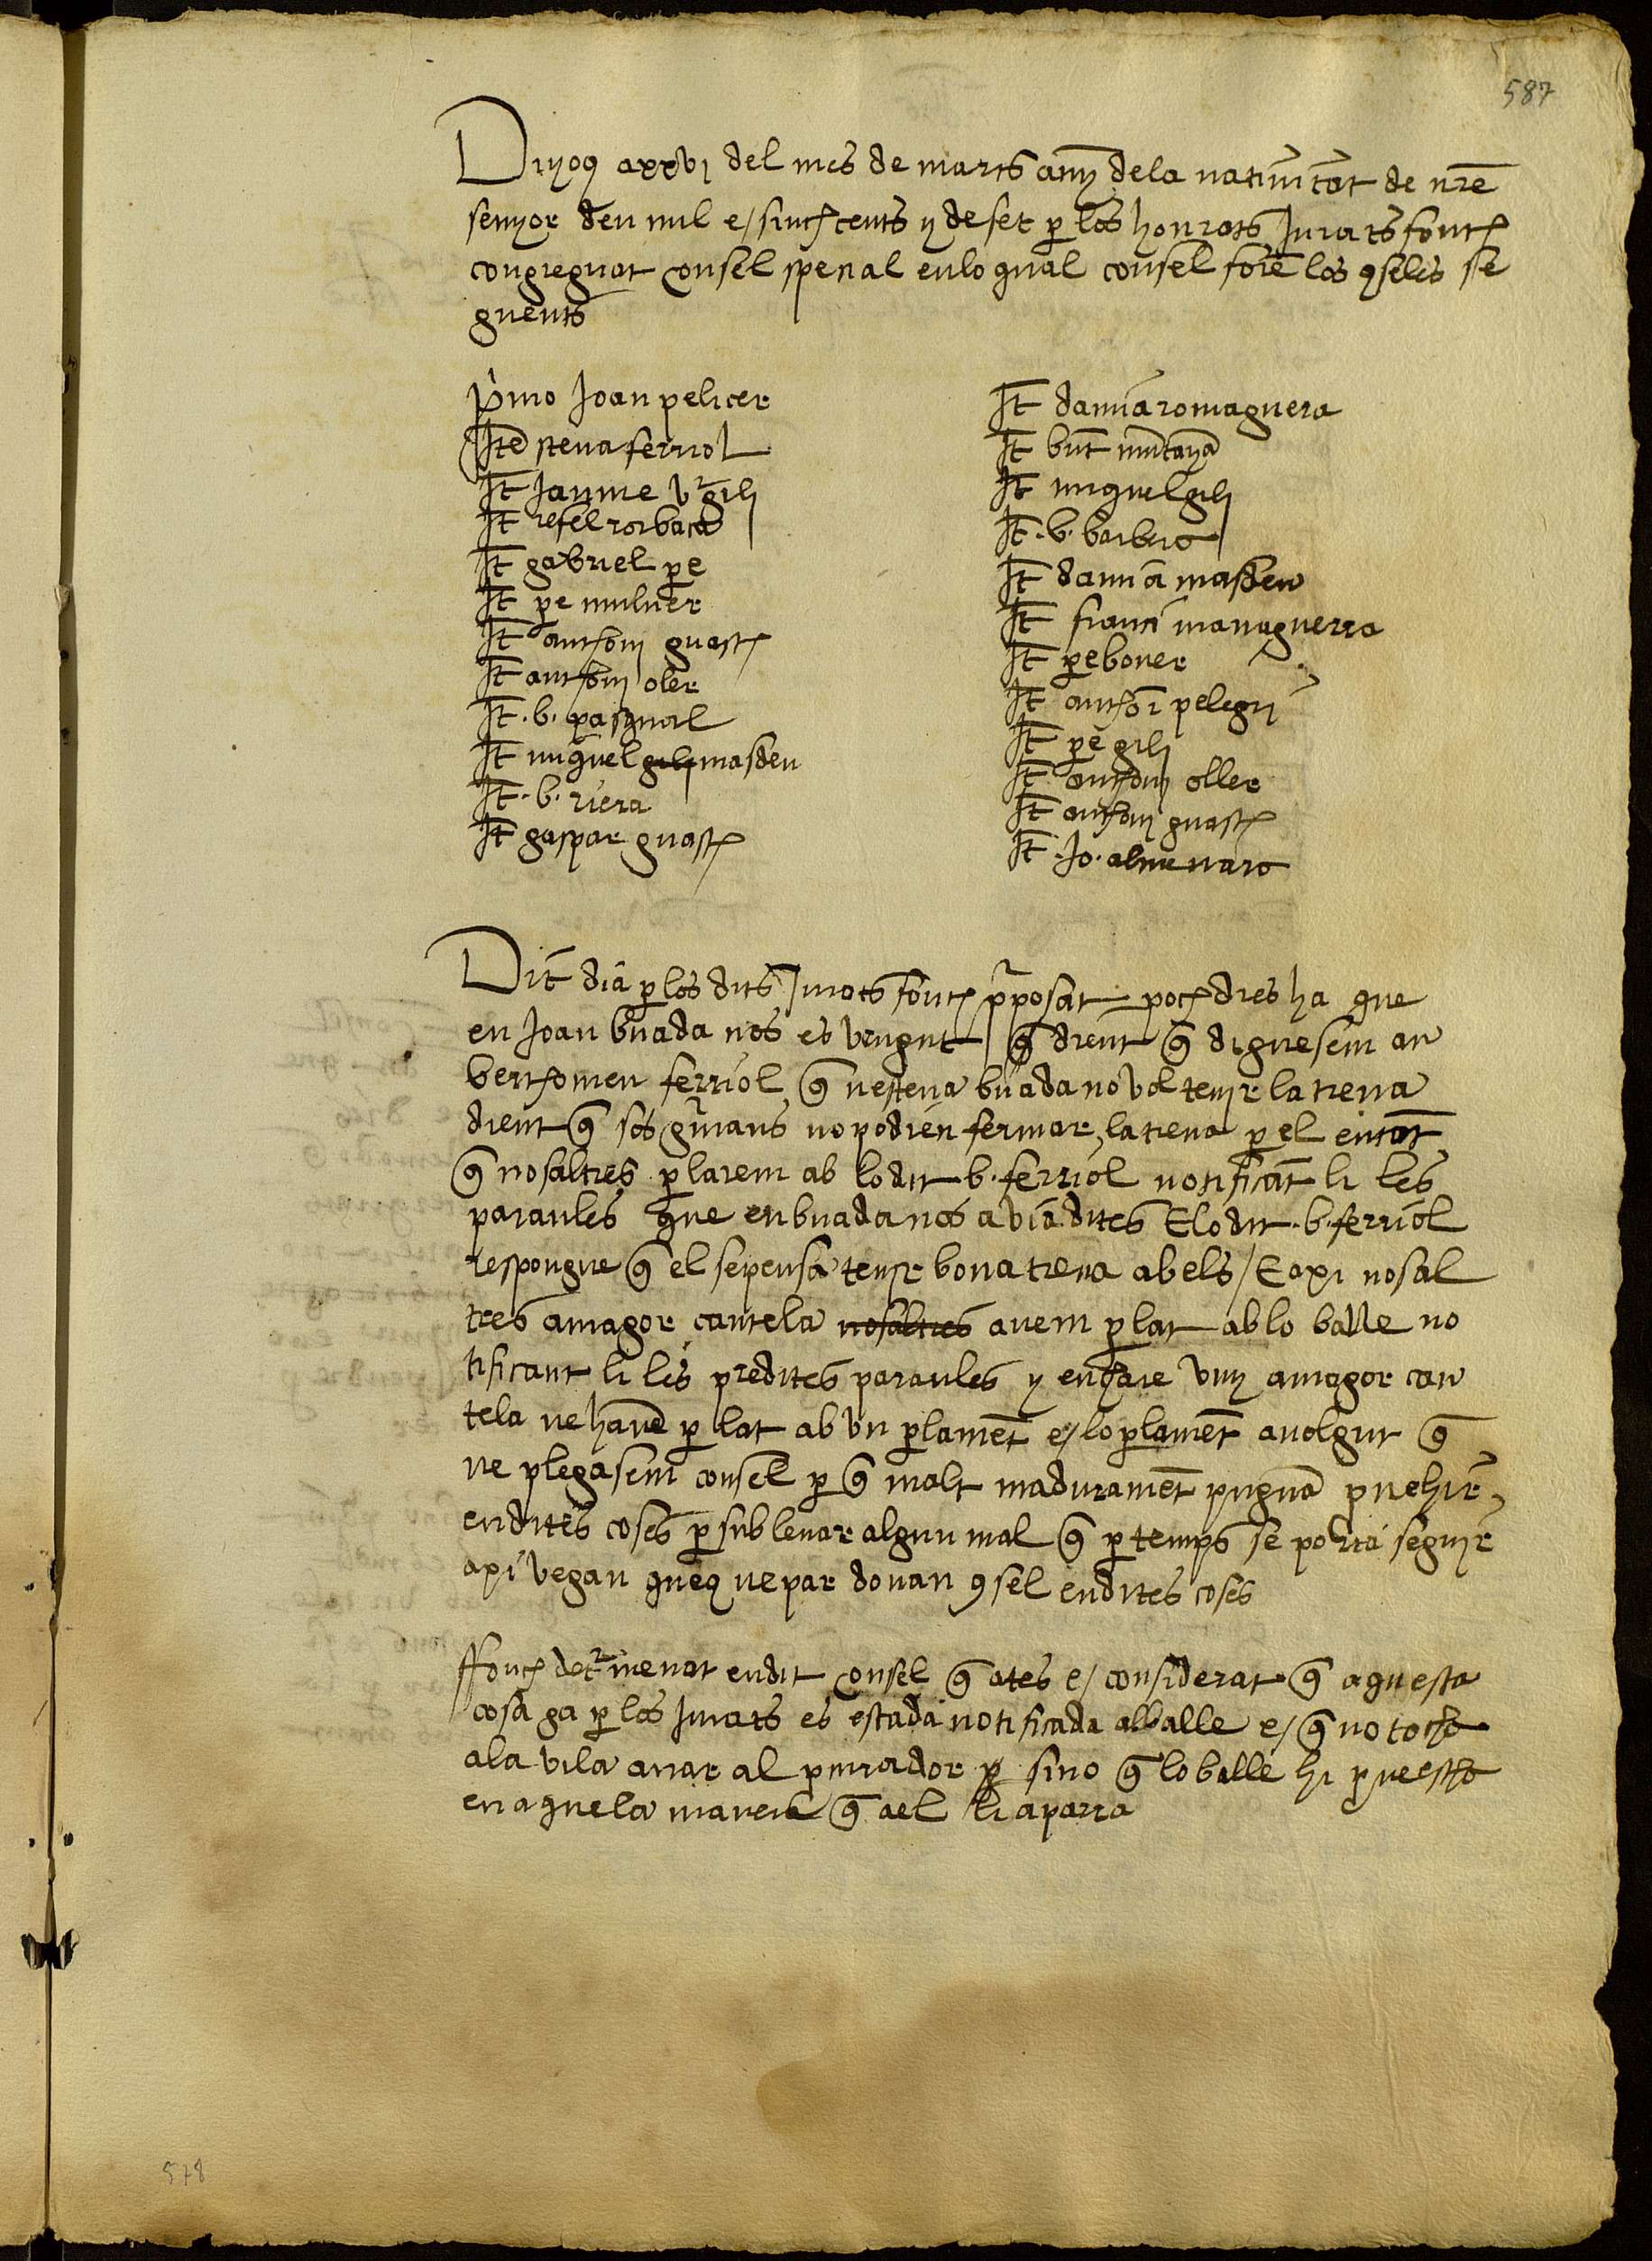 587
Diyoʒ a xxvi del mes de mars any dela nativitat de nr̄e
senyor deu mil e / sinch cents y deset p̱ los honrats Jurats fonch
congreguat consel spesial en lo qual consel forē los ꝯselés se
guents
p̍mo Joan pelicer
Itē steva ferriol
It̄ Jaume vrgili
It̄ refel
It̄ gabriel pe̱
It̄ pe̱ muluer
It̄ anthoni guasch
It̄ anthoni oler
It̄ .b. pasqual
It̄ miquel gili masdeu
It̄ .b. riera
It̄ gaspar guasch
It̄ damiā romaguera
It̄ bn̄t muntayā
It̄ miquel gili
It̄ .b. barbero
It̄ damiā masdeu
It̄ franci managuerra
It̄ pe̱ boner
It̄ anthoī pelegri
It̄ pe̱ gili
It̄ anthoni oller
It̄ anthoni guasch
It̄ .Jo. almenaro
Dit dia p̱ los dits Jurats fonch pͬposat poch dies ha que
en Joan buada nos es vengut dient q̄ diguesem an
berthomeu ferriol q̄ nesteva buada no vol tenir la treva
dient q̄ sos germans no podien fermar la treva p̱ el entāt
q̄ nosaltres p̱larem ab lo dit .b. ferriol notificāt li les
paraules que en buada nos avia dites E lo dit .b. ferriol
respongue q̄ el se pensa tenir bona treva ab els / E axi nosal
tres a magor cautela nosaltres avem p̱lat ab lo balle no
tificant li les predites paraules y encare vuy a magor cau
tela ne havē p̱lat ab vn p̱lamēt e / lo p̱lamēt a volgut q̄
ne plegasem consel p̱ q̄ molt maduramēt puguā p̱vehir
en dites coses p̱ sublevar algun mal q̄ p̱ temps se poria seguir
axi vegan queʒ ne par donan ꝯsel en dites coses
ffonch det̍menat en dit consel q̄ ates e / considerat q̄ aquesta
cosa ga p̱ los Jurats es estada notificada al balle e / q̄ no tocha
a la vila anar al p̱curador p̱ sino q̄ lo balle hi p̱veescha
en aquela manera q̄ a el li aparra
578